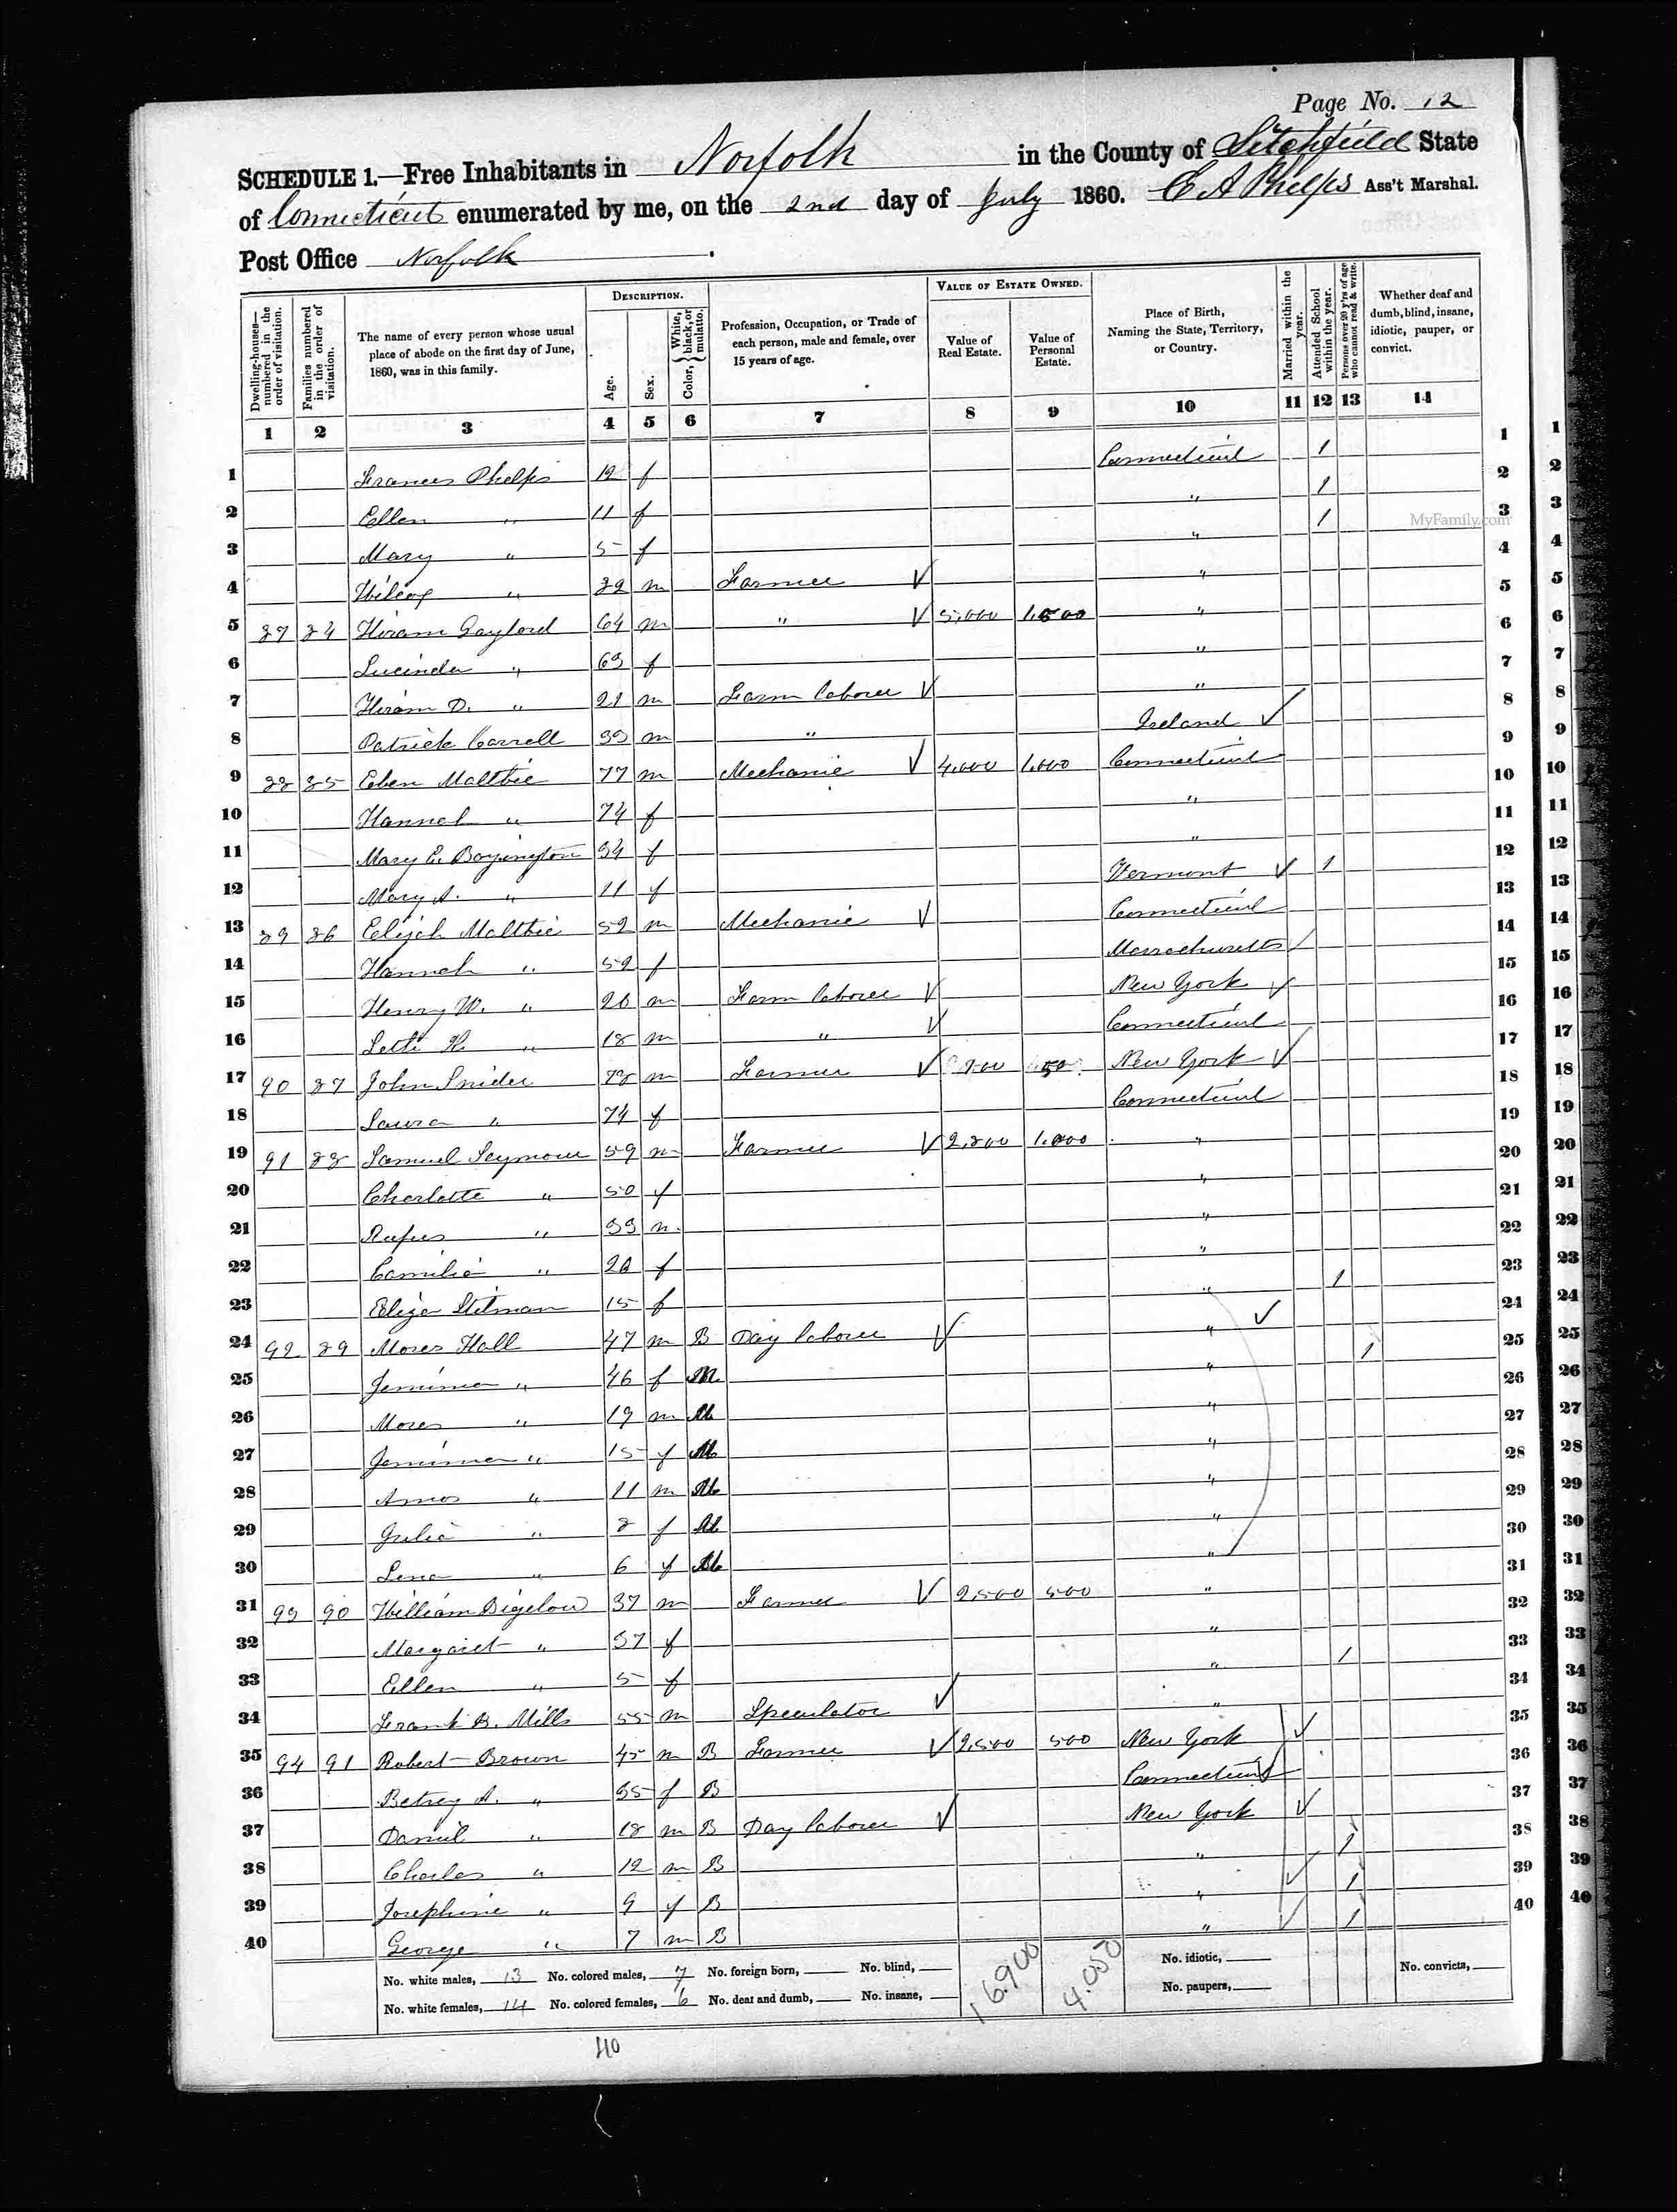 Page No. 12
SCHEDULE 1.—Free Inhabitants in Norfolk in the County of Litchfield State
of Connecticut enumerated by me, on the 2nd day of July 1860. C A Phelps Ass't Marshal.
Post Office Norfolk.
Dwelling-houses—numbered in the order of visitation. Families numbered in the order of visitation. The name of every person whose usual place of abode on the first day of June, 1860, was in this family. DESCRIPTION. Age. Sex. Color, White, black, or mulatto. Profession, Occupation, or Trade of each person, male and female, over 15 years of age. VALUE OF ESTATE OWNED. Value of Real Estate. Value of Personal Estate. Place of Birth, Naming the State, Territory, or Country. Married within the year. Attended School within the year. Persons over 20 y'rs of age who cannot read & write. Whether deaf and dumb, blind, insane, idiotic, pauper, or convict.
1 2 3 4 5 6 7 8 9 10 11 12 13 14
1 Frances Phelps 12 f Connecticut 1 1
2 Ellen " 11 f " 1 2
3 Mary " 5 f " 1 3
MyFamily.com
4 Wilcox " 82 m Farmer " 4
5 87 84 Hiram Gaylord 64 m " 5,000 1,500 " 5
6 Lucinda " 63 f " 6
7 Hiram D. " 21 m Farm laborer " 7
8 Patrick Carrell 33 m " Ireland 8
9 88 85 Eben Maltbie 77 m Mechanic 4,000 1,000 Connecticut 9
10 Hannah " 74 f " 10
11 Mary E. Boyington 34 f " 11
12 Mary A. " 11 f Vermont 1 12
13 89 86 Elijah Maltbie 52 m Mechanic Connecticut 13
14 Hannah " 52 f Massachusetts 14
15 Henry W. " 20 m Farm laborer New York 15
16 H. " 18 m " Connecticut 16
17 90 87 John Snider 78 m Farmer New York 17
18 Laura " 74 f Connecticut 18
19 91 88 Samuel Seymour 59 m Farmer 2,800 1,000 " 19
20 Charlotte " 50 f " 20
21 Rufus " 33 m " 21
22 Camilia " f " 22
23 Eliza Stilman 15 f " 1 23
24 92 89 Moses Hall 47 m B Day laborer " 24
25 Jemima " 46 f M " 1 25
26 Moses " 19 m M " 26
27 Jemima " 15 f M " 27
28 Amos " 11 m M " 28
29 Julia " 8 f M " 29
30 Lena " 6 f M " 30
31 93 90 William Bigelow 37 m Farmer 2,500 500 " 31
32 Margaret " 37 f " 32
33 Ellen " 5 f " 1 33
34 Frank B. Mills 55 m Speculator " 34
35 94 91 Robert Brown 45 m B Farmer 2,500 500 New York 35
36 Betsey A. " 35 f B Connecticut 36
37 Daniel " 18 m B Day laborer New York 37
38 Charles " 12 m B " 1 38
39 Josephine " 9 f B " 1 39
40 George " 7 m B " 1 40
No. white males, 13 No. colored males, 7 No. foreign born, No. blind, 16,900 4,050 No. idiotic, No. convicts,
No. white females, 14 No. colored females, 6 No. deaf and dumb, No. insane, No. paupers,
40